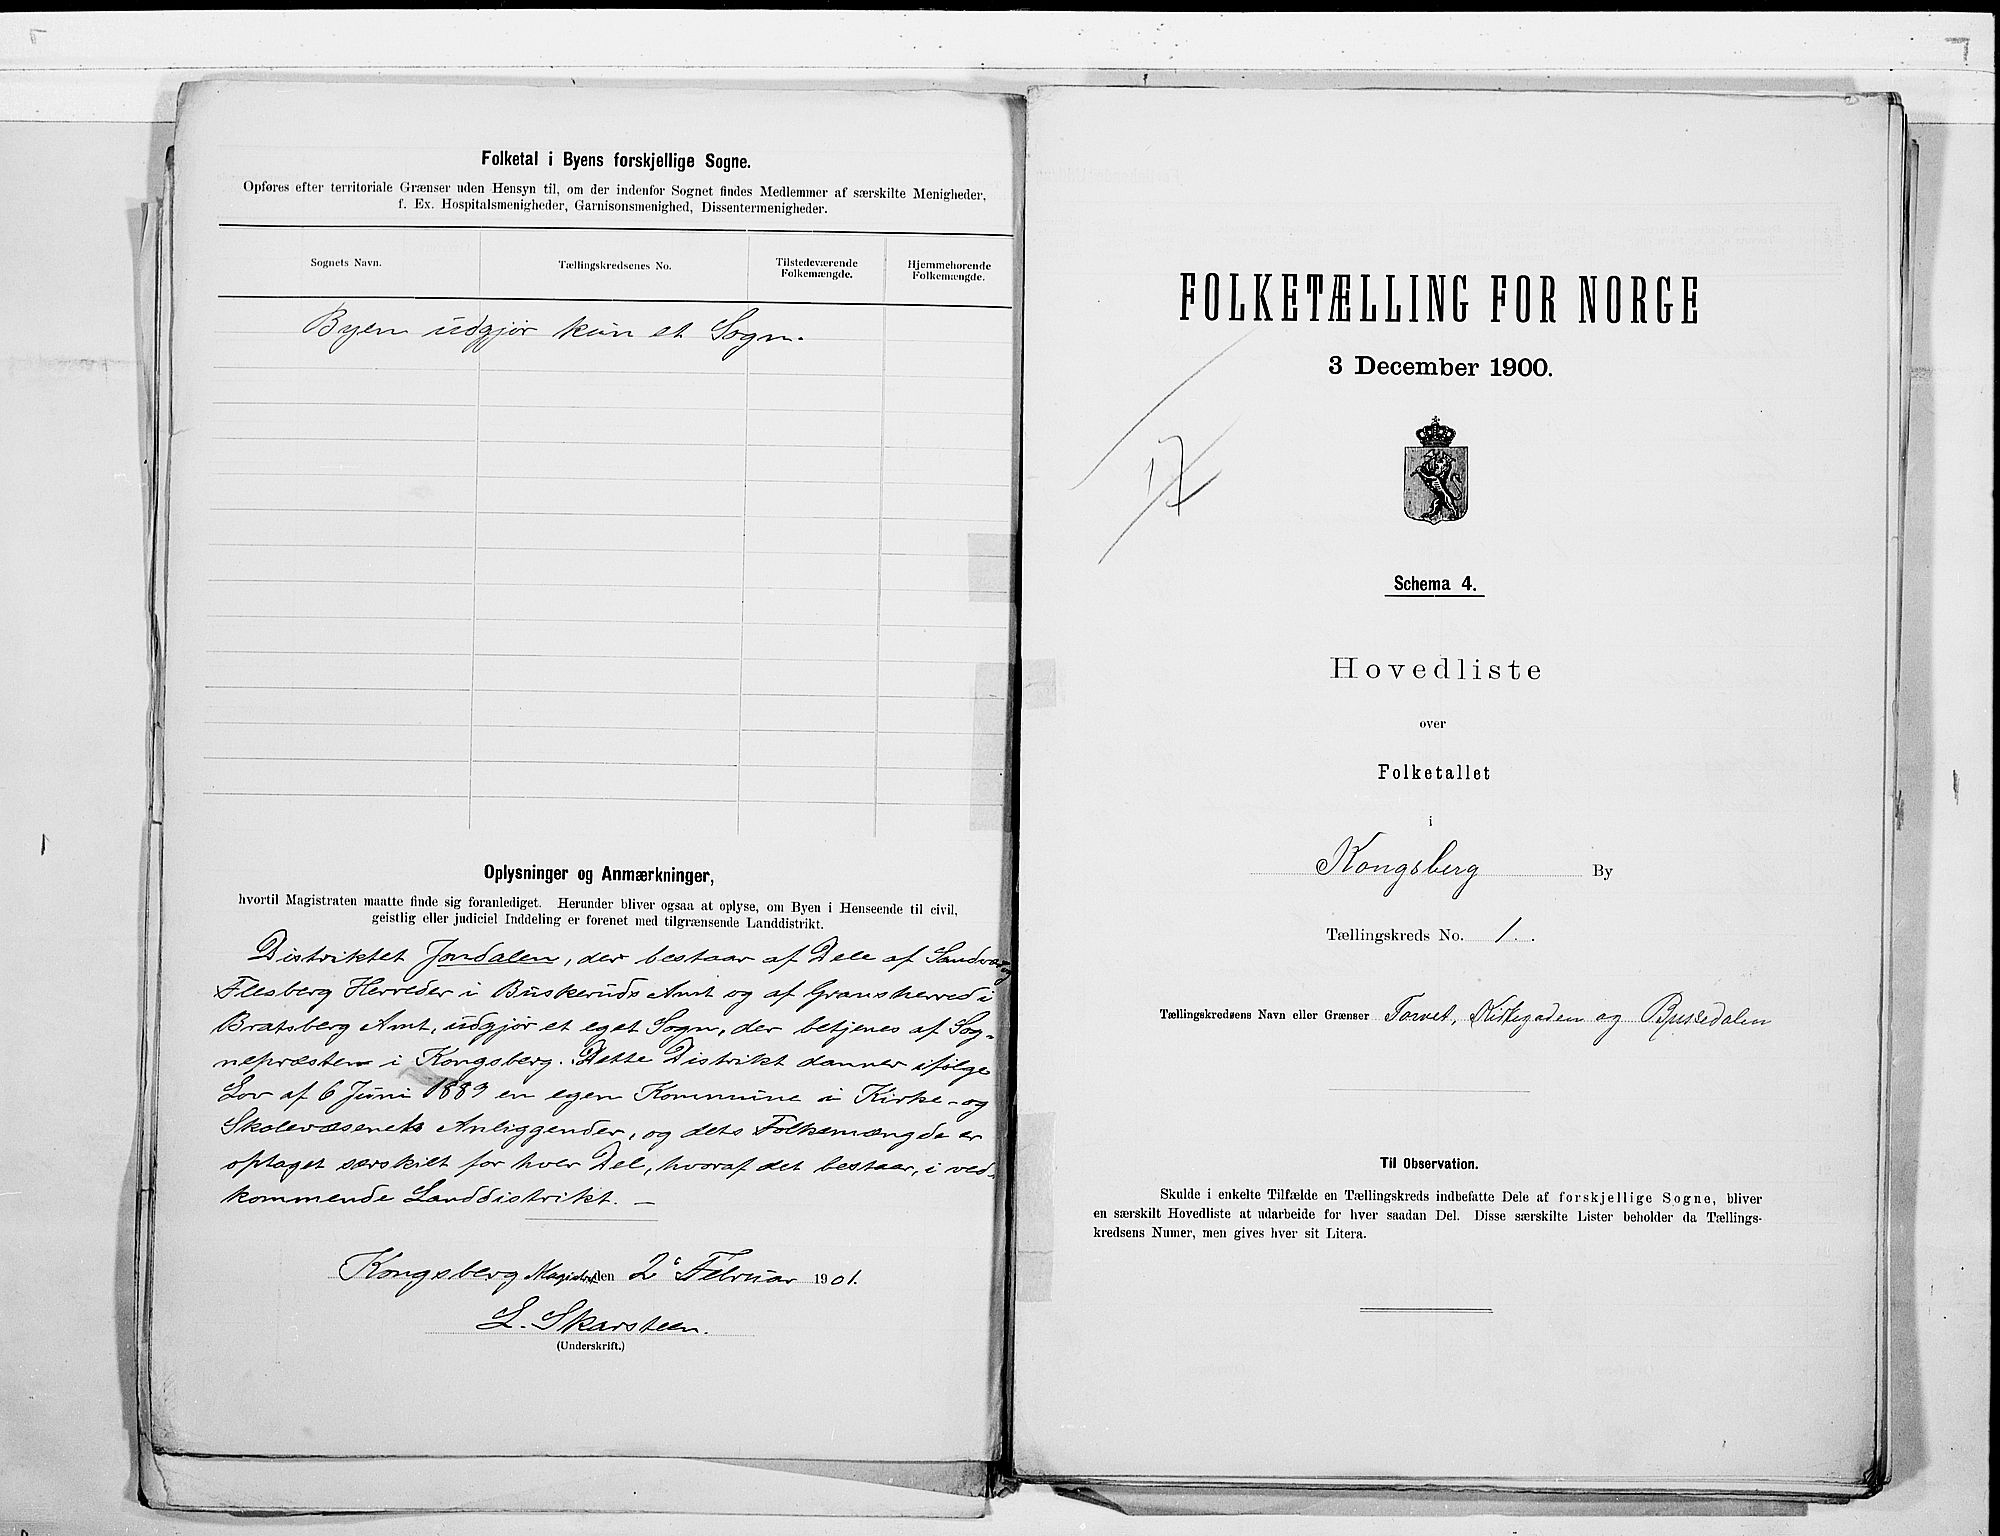 Folketal i Byens forskjellige Sogne.
Opføres efter territoriale Grænser uden Hensyn til, om der indenfor Sognet findes Medlemmer af særskilte Menigheder,
f. Ex. Hospitalsmenigheder, Garnisonsmenighed, Dissentermenigheder.
Sognets Navn.
Tællingskredsenes No.
Tilstedeværende
Folkemængde.
Hjemmehørende
Folkemængde.
Byen udgjør kun et Sogn.
Oplysninger og Anmærkninger,
hvortil Magistraten maatte finde sig foranlediget. Herunder bliver ogsaa at oplyse, om Byen i Henseende til civil,
geistlig eller judiciel Inddeling er forenet med tilgrænsende Landdistrikt.
Distriktet Jondalen, der bestaar af Dele af Sandsvær og
Flesberg Herreder i Buskeruds Amt og af Gransherred i
Bratsberg Amt, udgjør et eget Sogn, der betjenes af Sog-
nepræsten i Kongsberg. Dette Distrikt danner ifølge
Lov af 6 Juni 1889 en egen Kommune i Kirke- og
Skolevæsenets Anliggender, og dets Folkemængde er
optaget særskilt for hver Del, hvoraf det bestaar, i ved-
kommende Landdistrikt. —
Kongsberg Magistrat den 2 Februar 1901.
L. Skarsteen.
(Underskrift.)
FOLKETÆLLING FOR NORGE
3 December 1900.
17
Schema 4.
Hovedliste
over
Folketallet
i
Kongsberg By
Tællingskreds No. 1.
Tællingskredsens Navn eller Grænser Torvet, Kirkegaden og Bussedalen
Til Observation.
Skulde i enkelte Tilfælde en Tællingskreds indbefatte Dele af forskjellige Sogne, bliver
en særskilt Hovedliste at udarbeide for hver saadan Del. Disse særskilte Lister beholder da Tællings-
kredsens Numer, men gives hver sit Litera.